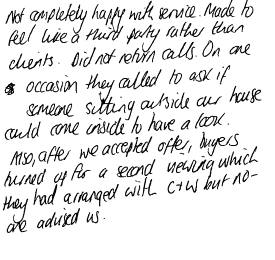 Not completely happy with service. Made to
feel like a third party rather than
clients. Did not return calls. On one
occasion they called to ask if
someone sitting outside our house
could come inside to have a look.
Also, after we accepted offer, buyers
turned up for a second viewing which
they had arranged with C+W but no-
one advised us.